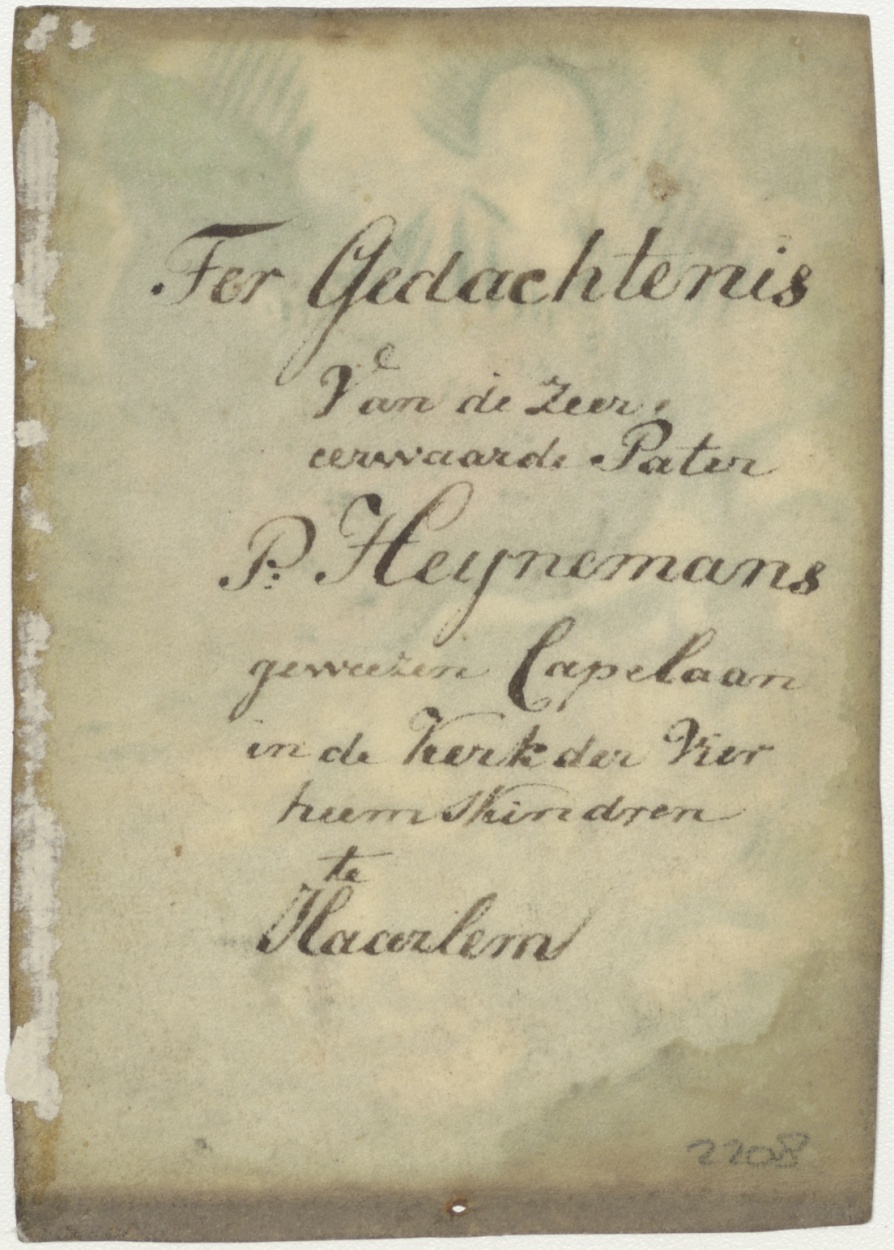 Ter Gedachtenis
Van de Zeer
eerwaarde Pater
P: Heynemans
geweezen Capelaan
in de Kerk der Vier
heemskindren
te
Haarlem
2208